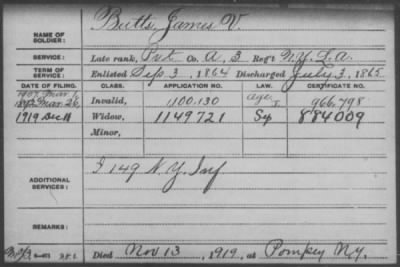 NAME OF SOLDIER: Butts, James V.
SERVICE: Late rank, Pvt Co. A, 3 Reg't N.Y. L.A.
TERM OF SERVICE: Enlisted Sep 3, 1864 Discharged July 3, 1865
DATE OF FILING. CLASS. APPLICATION NO. LAW. CERTIFICATE NO.
1907 Mar. 1, age
Mar. 26, Invalid, 1100.130 I 966,798
1919 Dec 11 Widow, 1149721 Sep 884009
Minor,
ADDITIONAL SERVICES: I 149 N.Y. Inf
REMARKS:
Died Nov 13, 1919, at Pompey N.Y.